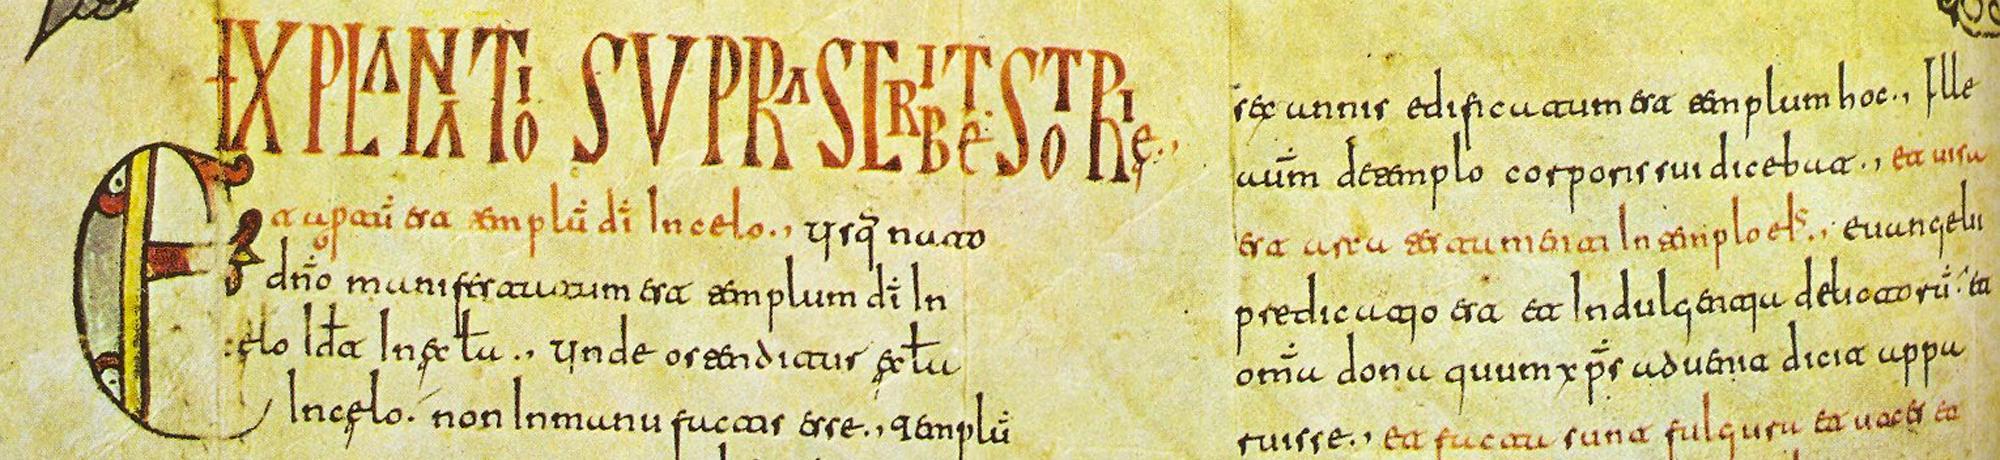 EXPLANATIO SUPRASERIBTE STORIE.,
Et aptū est templū dī In celo., Usq̄ nato
dn̄o manifestatum est templum dī In
celo Id est In ecl̄a., Unde ostenditur ecl̄a
In celo. non In manu factis esse., templū
sex annis edificatum est templum hoc., Ille
aūm de templo corporis sui dicebat., et uisa
est arca testamenti In templo eís., euangelii
predicatio est et Indulgentia delictorū et
om̄a dona quum xp̄s aduenit dicit appa
ruisse., et facta sunt fulgura et uoces et